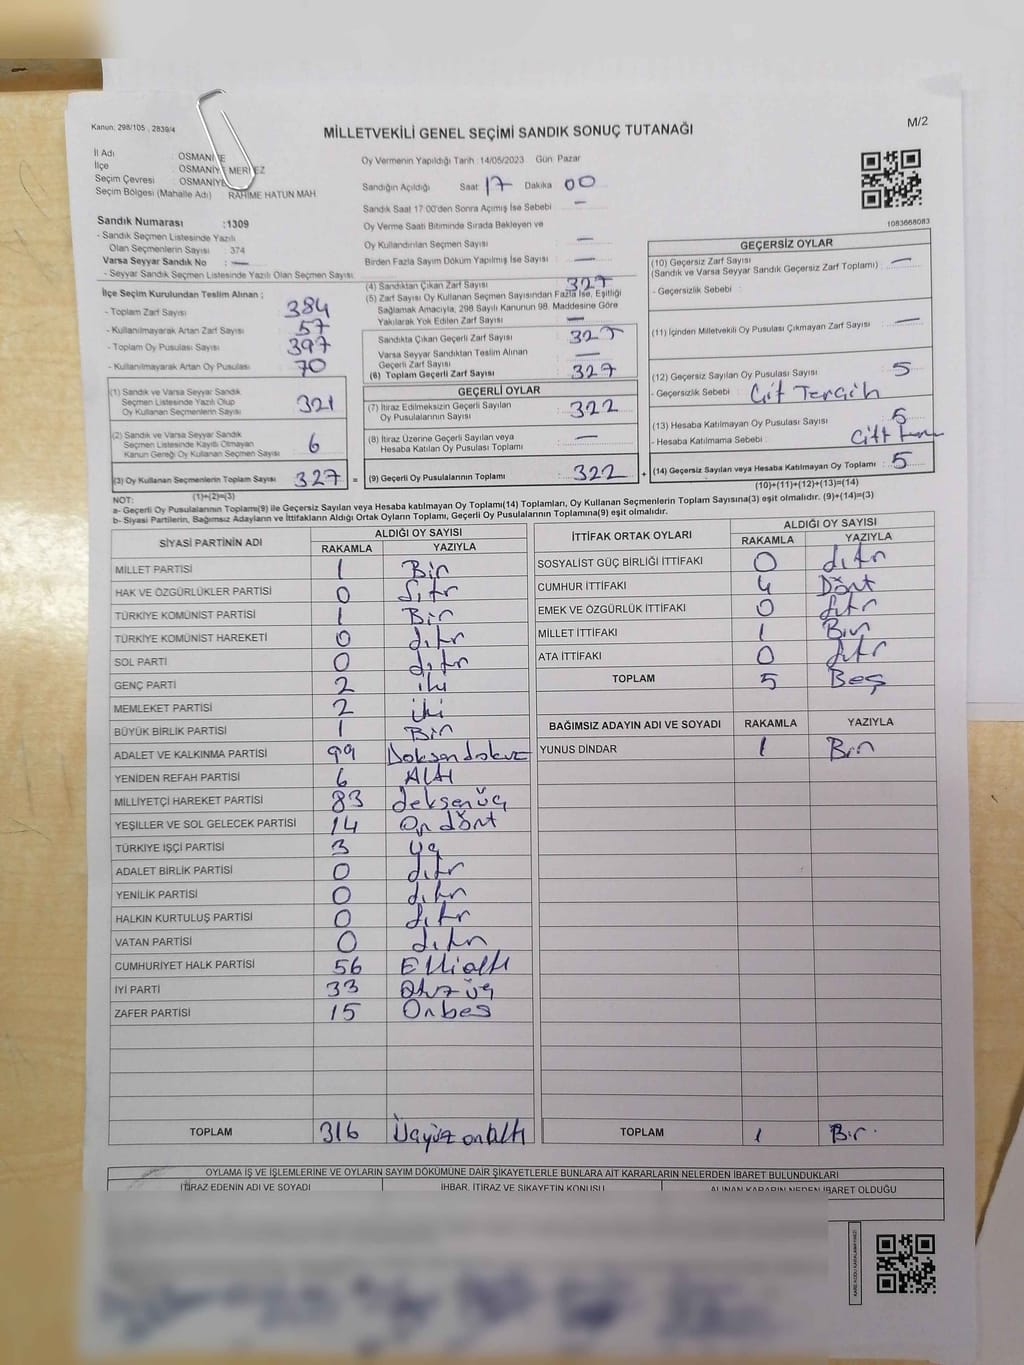 Kanun: 298/105 , 2839/4
MİLLETVEKİLİ GENEL SEÇİMİ SANDIK SONUÇ TUTANAĞI
M/2
İl Adı : OSMANİYE
İlçe : OSMANİYE MERKEZ
Seçim Çevresi : OSMANİYE
Seçim Bölgesi (Mahalle Adı) RAHİME HATUN MAH
Oy Vermenin Yapıldığı Tarih :14/05/2023 Gün: Pazar
Sandığın Açıldığı Saat 17 Dakika 00
Sandık Saat 17:00'den Sonra Açılmış İse Sebebi : —
Oy Verme Saati Bitiminde Sırada Bekleyen ve
Oy Kullandırılan Seçmen Sayısı : —
Birden Fazla Sayım Döküm Yapılmış İse Sayısı : —
1083668083
Sandık Numarası :1309
- Sandık Seçmen Listesinde Yazılı
Olan Seçmenlerin Sayısı : 374
Varsa Seyyar Sandık No : —
- Seyyar Sandık Seçmen Listesinde Yazılı Olan Seçmen Sayısı:
İlçe Seçim Kurulundan Teslim Alınan ;
- Toplam Zarf Sayısı : 384
- Kullanılmayarak Artan Zarf Sayısı : 57
- Toplam Oy Pusulası Sayısı : 397
- Kullanılmayarak Artan Oy Pusulası : 70
(1) Sandık ve Varsa Seyyar Sandık
Seçmen Listesinde Yazılı Olup
Oy Kullanan Seçmenlerin Sayısı : 321
(2) Sandık ve Varsa Seyyar Sandık
Seçmen Listesinde Kayıtlı Olmayan
Kanun Gereği Oy Kullanan Seçmen Sayısı : 6
(3) Oy Kullanan Seçmenlerin Toplam Sayısı : 327 =
(1)+(2)=(3)
(4) Sandıktan Çıkan Zarf Sayısı : 327
(5) Zarf Sayısı Oy Kullanan Seçmen Sayısından Fazla İse, Eşitliği
Sağlamak Amacıyla, 298 Sayılı Kanunun 98. Maddesine Göre
Yakılarak Yok Edilen Zarf Sayısı : —
Sandıkta Çıkan Geçerli Zarf Sayısı : 327
Varsa Seyyar Sandıktan Teslim Alınan
Geçerli Zarf Sayısı : —
(6) Toplam Geçerli Zarf Sayısı : 327
GEÇERLİ OYLAR
(7) İtiraz Edilmeksizin Geçerli Sayılan
Oy Pusulalarının Sayısı : 322
(8) İtiraz Üzerine Geçerli Sayılan veya
Hesaba Katılan Oy Pusulası Sayısı : —
(9) Geçerli Oy Pusulalarının Toplamı : 322 +
GEÇERSİZ OYLAR
(10) Geçersiz Zarf Sayısı
(Sandık ve Varsa Seyyar Sandık Geçersiz Zarf Toplamı) : —
- Geçersizlik Sebebi :
(11) İçinden Milletvekili Oy Pusulası Çıkmayan Zarf Sayısı : —
(12) Geçersiz Sayılan Oy Pusulası Sayısı : 5
- Geçersizlik Sebebi : Çift Tercih
(13) Hesaba Katılmayan Oy Pusulası Sayısı : 5
- Hesaba Katılmama Sebebi : Çift
(14) Geçersiz Sayılan veya Hesaba Katılmayan Oy Toplamı : 5
(10)+(11)+(12)+(13)=(14)
NOT:
a- Geçerli Oy Pusulalarının Toplamı(9) ile Geçersiz Sayılan veya Hesaba katılmayan Oy Toplamı(14) Toplamları, Oy Kullanan Seçmenlerin Toplam Sayısına(3) eşit olmalıdır. (9)+(14)=(3)
b- Siyasi Partilerin, Bağımsız Adayların ve İttifakların Aldığı Ortak Oyların Toplamı, Geçerli Oy Pusulalarının Toplamına(9) eşit olmalıdır.
SİYASİ PARTİNİN ADI ALDIĞI OY SAYISI
RAKAMLA YAZIYLA
MİLLET PARTİSİ 1 Bir
HAK VE ÖZGÜRLÜKLER PARTİSİ 0 Sıfır
TÜRKİYE KOMÜNİST PARTİSİ 1 Bir
TÜRKİYE KOMÜNİST HAREKETİ 0 Sıfır
SOL PARTİ 0 Sıfır
GENÇ PARTİ 2 iki
MEMLEKET PARTİSİ 2 iki
BÜYÜK BİRLİK PARTİSİ 1 Bir
ADALET VE KALKINMA PARTİSİ 99 Doksandokuz
YENİDEN REFAH PARTİSİ 6 Altı
MİLLİYETÇİ HAREKET PARTİSİ 83 Seksenüç
YEŞİLLER VE SOL GELECEK PARTİSİ 14 On dört
TÜRKİYE İŞÇİ PARTİSİ 3 Üç
ADALET BİRLİK PARTİSİ 0 Sıfır
YENİLİK PARTİSİ 0 Sıfır
HALKIN KURTULUŞ PARTİSİ 0 Sıfır
VATAN PARTİSİ 0 Sıfır
CUMHURİYET HALK PARTİSİ 56 Elli altı
İYİ PARTİ 33 Otuz üç
ZAFER PARTİSİ 15 Onbeş
TOPLAM 316 Üçyüz onaltı
İTTİFAK ORTAK OYLARI ALDIĞI OY SAYISI
RAKAMLA YAZIYLA
SOSYALİST GÜÇ BİRLİĞİ İTTİFAKI 0 Sıfır
CUMHUR İTTİFAKI 4 Dört
EMEK VE ÖZGÜRLÜK İTTİFAKI 0 Sıfır
MİLLET İTTİFAKI 1 Bir
ATA İTTİFAKI 0 Sıfır
TOPLAM 5 Beş
BAĞIMSIZ ADAYIN ADI VE SOYADI RAKAMLA YAZIYLA
YUNUS DİNDAR 1 Bir
TOPLAM 1 Bir
OYLAMA İŞ VE İŞLEMLERİNE VE OYLARIN SAYIM DÖKÜMÜNE DAİR ŞİKAYETLERLE BUNLARA AİT KARARLARIN NELERDEN İBARET BULUNDUKLARI
İTİRAZ EDENİN ADI VE SOYADI İHBAR, İTİRAZ VE ŞİKAYETİN KONUSU ALINAN KARARIN NEDEN İBARET OLDUĞU